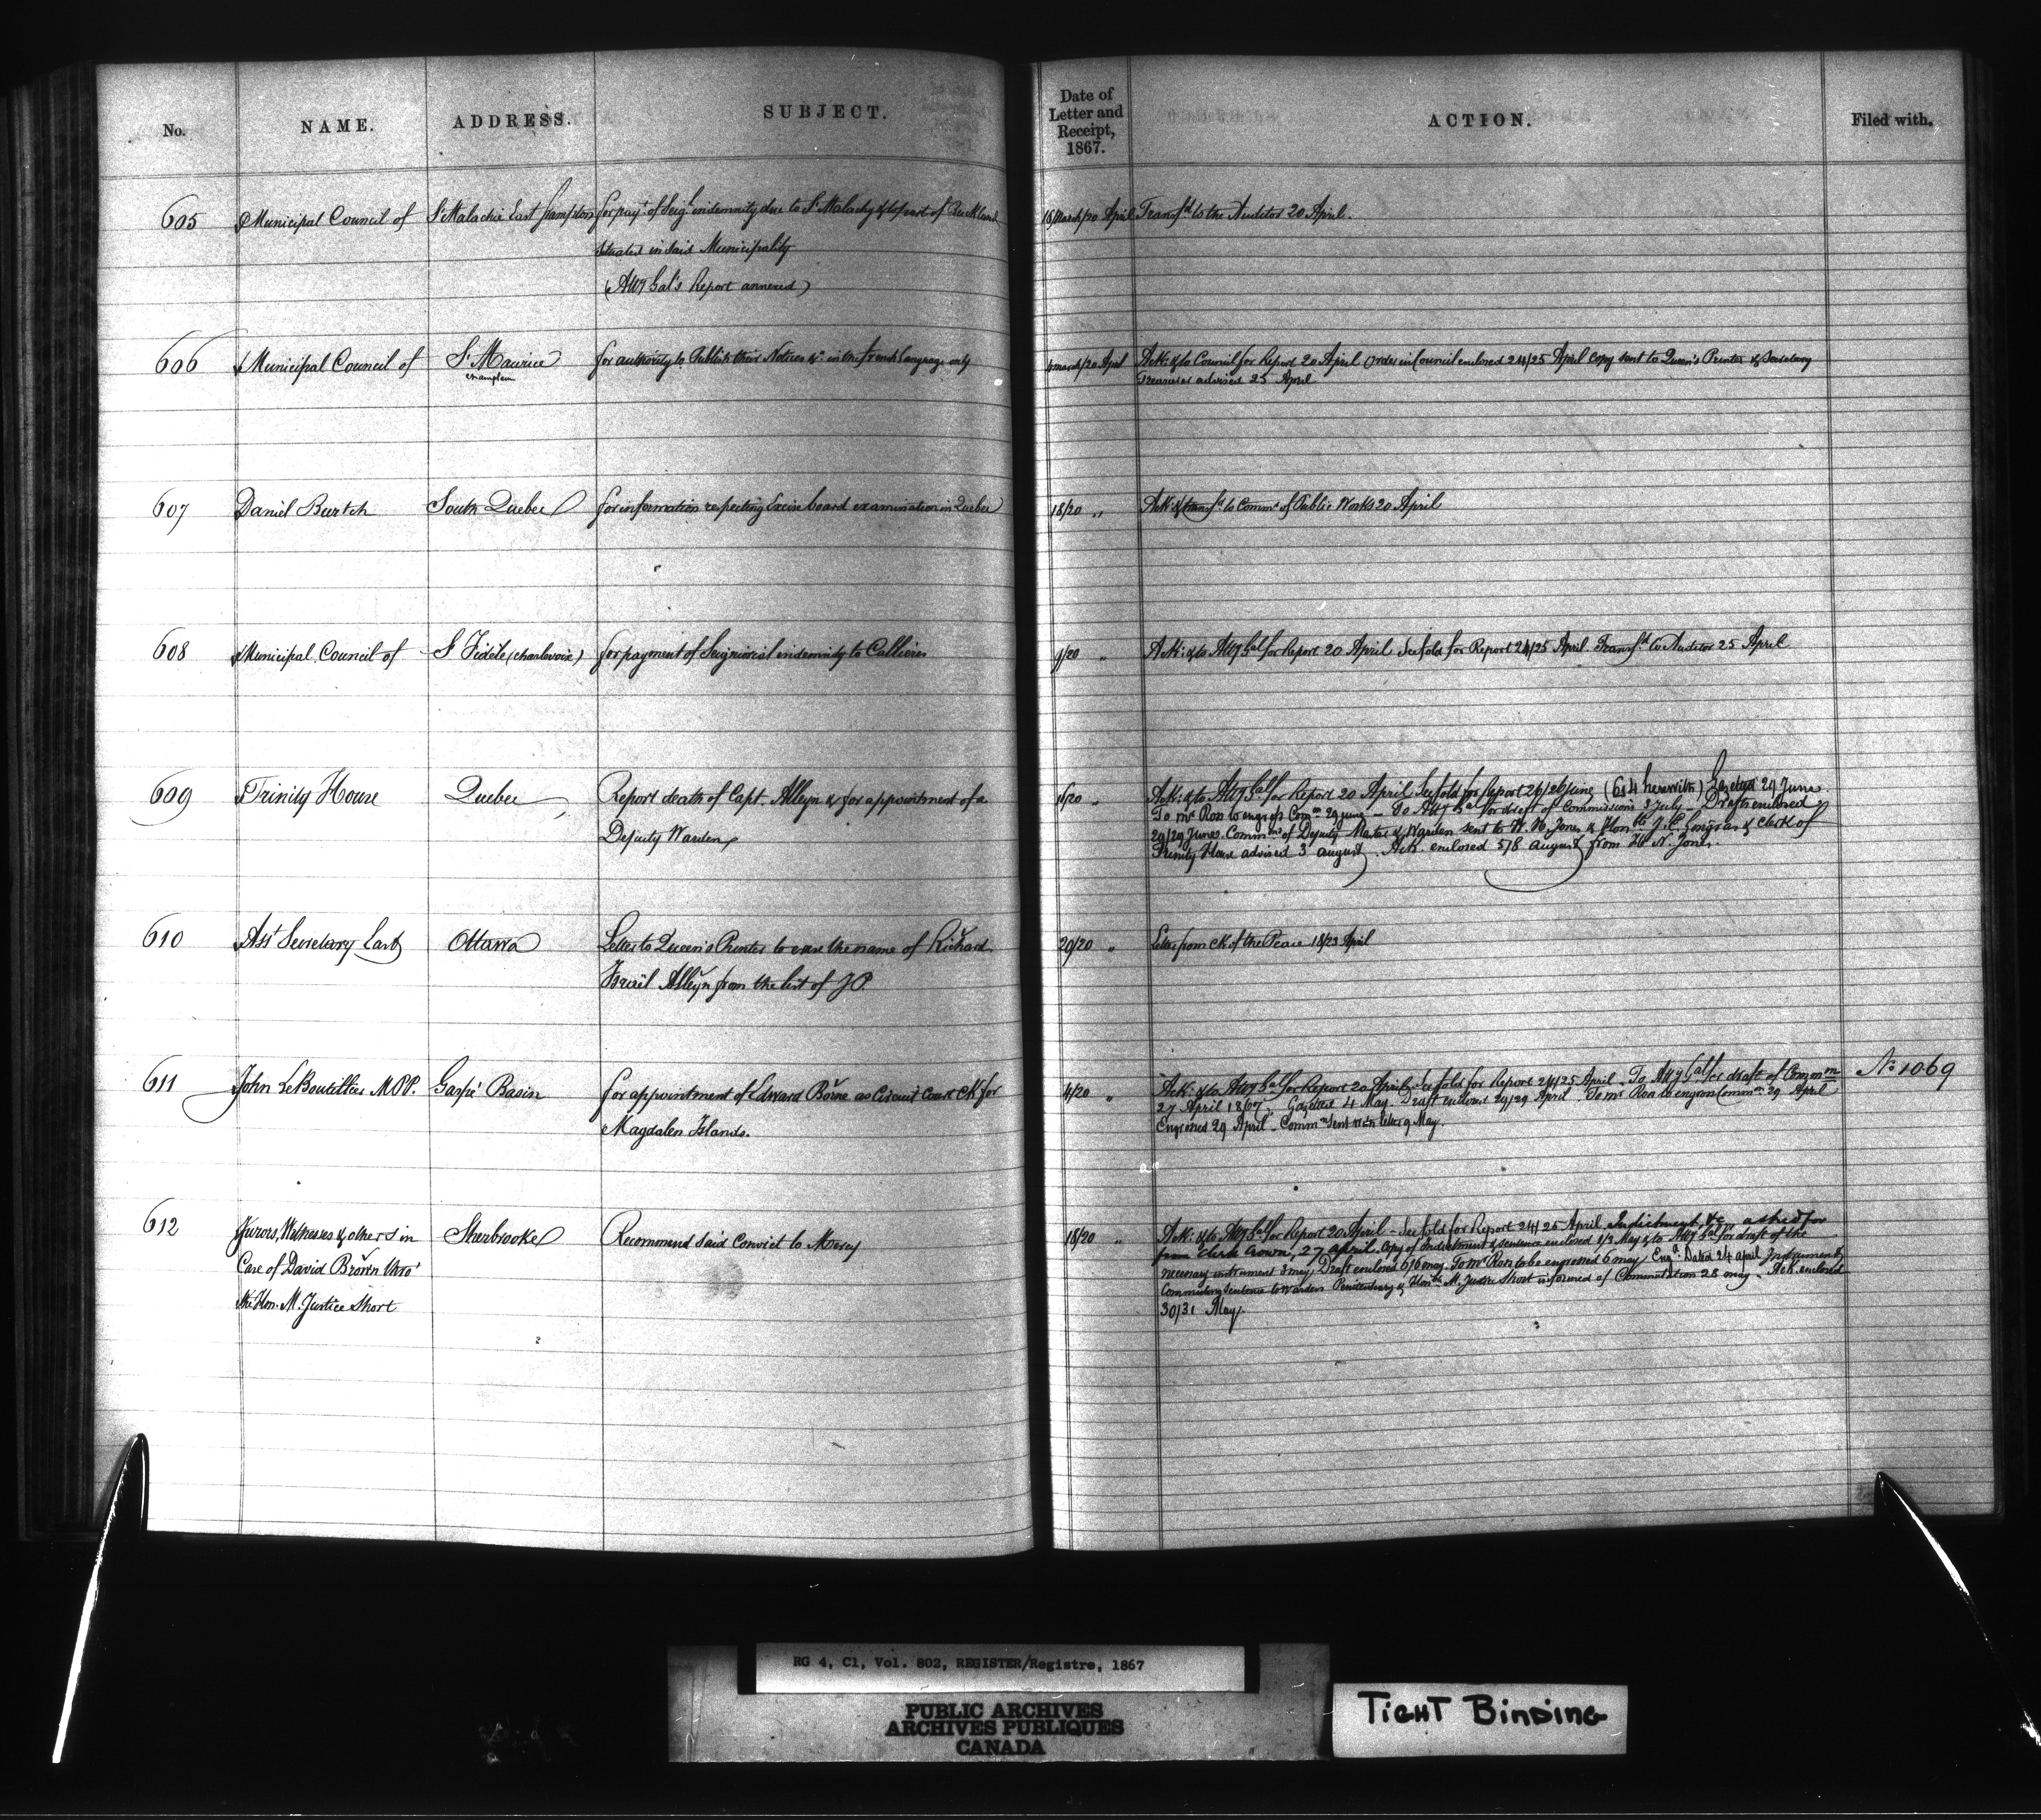 No. NAME. ADDRESS. SUBJECT. Date of Letter and Receipt, 1867. ACTION. Filed with.
605 Municipal Council of St Malachie East Frampton for payt of Seigl indemnity due to St Malachy & to part of Buckland 16 March/20 April Transfd to the Auditor 20 April.
situated in said Municipality
(Atty Gal's Report annexed)
606 Municipal Council of St Maurice for authority to Publish their Notices &c in the french language only march/20 April Ack: & to Council for Report 20 April Order in Council enclosed 24/25 April copy sent to Queen's Printer & Secretary
Champlain Treasurer advised 25 April
607 Daniel Burtch South Quebec for information respecting Excise board examination in Quebec 18/20 " Ack: & transfd to Commr of Public Works 20 April
608 Municipal Council of St Fidèle (Charlevoix) for payment of Seigniorial indemnity to Callieres /20 " Ack: & to Atty Gal for Report 20 April See fold for Report 24/25 April Transfd to Auditor 25 April
609 Trinity House Quebec Report death of Capt. Alleyn & for appointment of a 16/20 " Ack: & to Atty Gal for Report 20 April See fold for Report 26/26 June (614 herewith) Gazetted 29 June
Deputy Warden To Mr Ross to engross Comn 29 June - To Atty Gal for draft of Commissions 3 July - Drafts enclosed
29/29 June. Commns of Deputy Master & Warden sent to W. H. Jones & Honble J. E. Gingras & Clerk of
Trinity House advised 3 August. Ack. enclosed 5/8 August from W. H. Jones.
610 Asst Secretary East Ottawa Letter to Queen's Printer to erase the name of Richard 20/20 " Letter from Ck of the Peace 18/23 April
Israël Alleyn from the list of J P.
611 John LeBoutillier M.P.P. Gaspé Basin for appointment of Edward Borne as Circuit Court Ck for 4/20 " Ack: & to Atty Gal for Report 20 April - See fold for Report 24/25 April - To Atty Gal for draft of Commn No 1069
Magdalen Islands. 27 April 1867. Gazetted 4 May. Draft enclosed 29/29 April - To Mr Ross to engross Commn 29 April
Engrossed 29 April - Commn sent with letter 9 May.
612 Jurors, Witnesses & others in Sherbrooke Recommend said Convict to Mercy 18/20 " Ack: & to Atty Gal for Report 20 April - See fold for Report 24/25 April Indictment, &c., asked for
Case of David Brown thro' from Clerk Crown, 27 April. Copy of Indictment & sentence enclosed 1/3 May & to Atty Gal for draft of the
the Hon. M. Justice Short necessary instrument 3 may. Draft enclosed 6/6 may. To Mr Ross to be engrossed 6 may Engd. Dated 24 april Instrument
Commuting sentence to Warden Penitentiary & Honble M. Justice Short informed of Commutation 28 may - Ack enclosed
30/31 May.
RG 4, C1, Vol. 802, REGISTER/Registre, 1867
PUBLIC ARCHIVES
ARCHIVES PUBLIQUES
CANADA
TIGHT BINDING